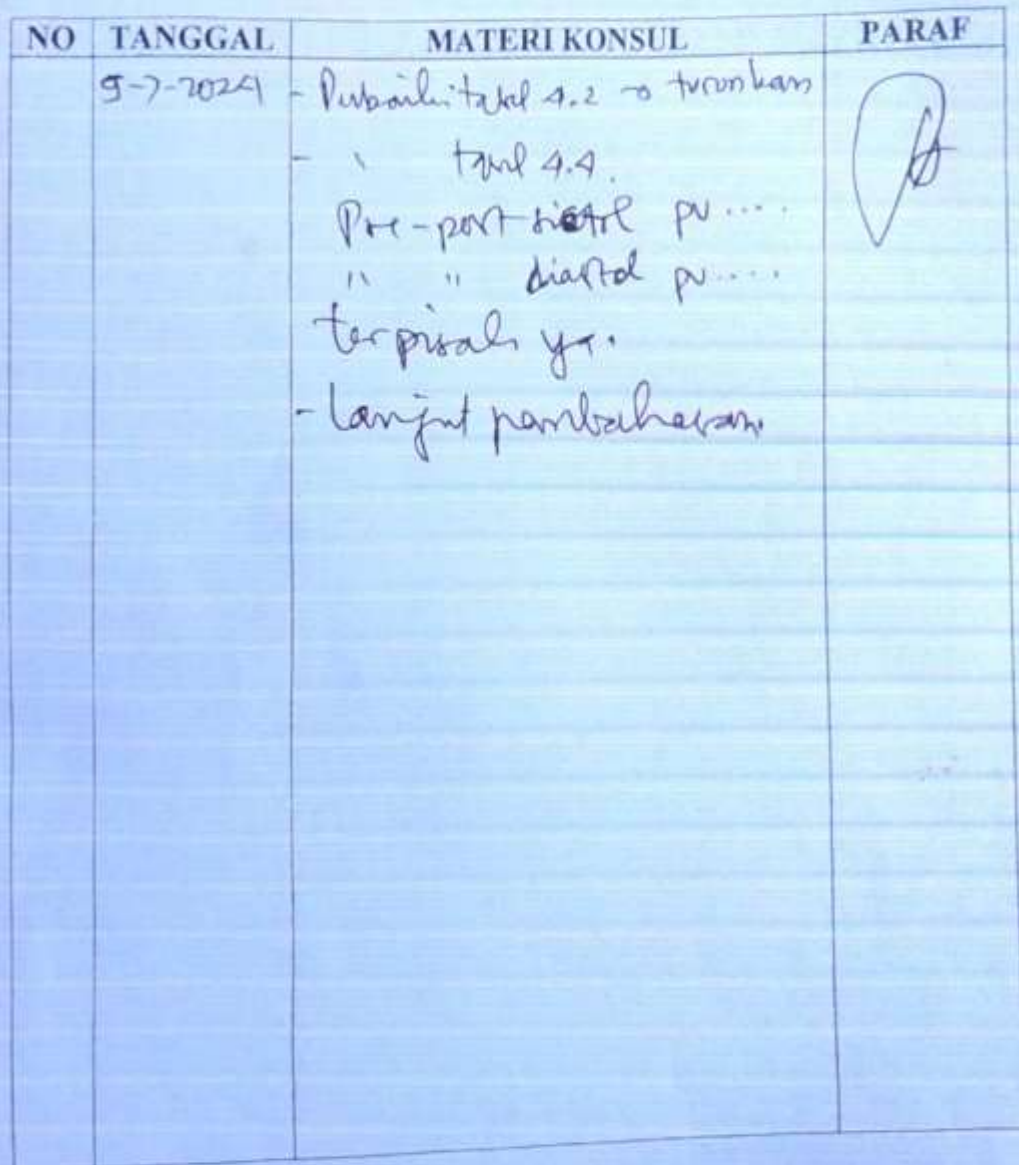 NO TANGGAL MATERI KONSUL PARAF
9-7-2024 - Perbaiki tabel 4.2 → turunkan
- " tabel 4.4.
Pre-post sistol pv ....
" " diastol pv ....
terpisah ya.
- lanjut pembahasan.